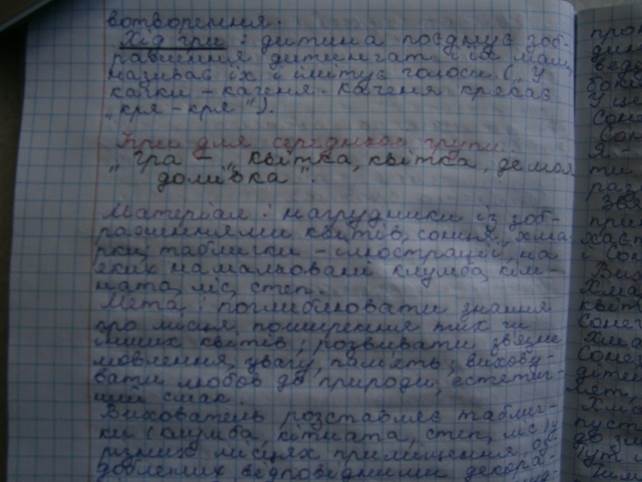 вотворення.
Хід гри: дитина поєднує зоб-
раження дитинчат і їх мам,
називає їх і імітує голоси („У
качки – каченя. Каченя крякає
„кря – кря").
Ігри для середньої групи.
„Гра – „квітка, квітка, де моя
домівка".
Матеріал: нагрудники із зоб-
раженнями квітів, сонця, хма-
рки; таблички – ілюстрації, на
яких намальовани клумба, кім-
ната, ліс, степ.
Мета: поглиблювати знання
про місця поширення тих чи
інших квітів; розвивати зв'язне
мовлення, увагу, пам'ять; вихову-
вати любов до природи, естетич-
ний смак.
Вихователь розставляє таблич-
ки (клумба, кімната, степ, ліс) у
різних місцях приміщення, об-
доблених відповідними декора-